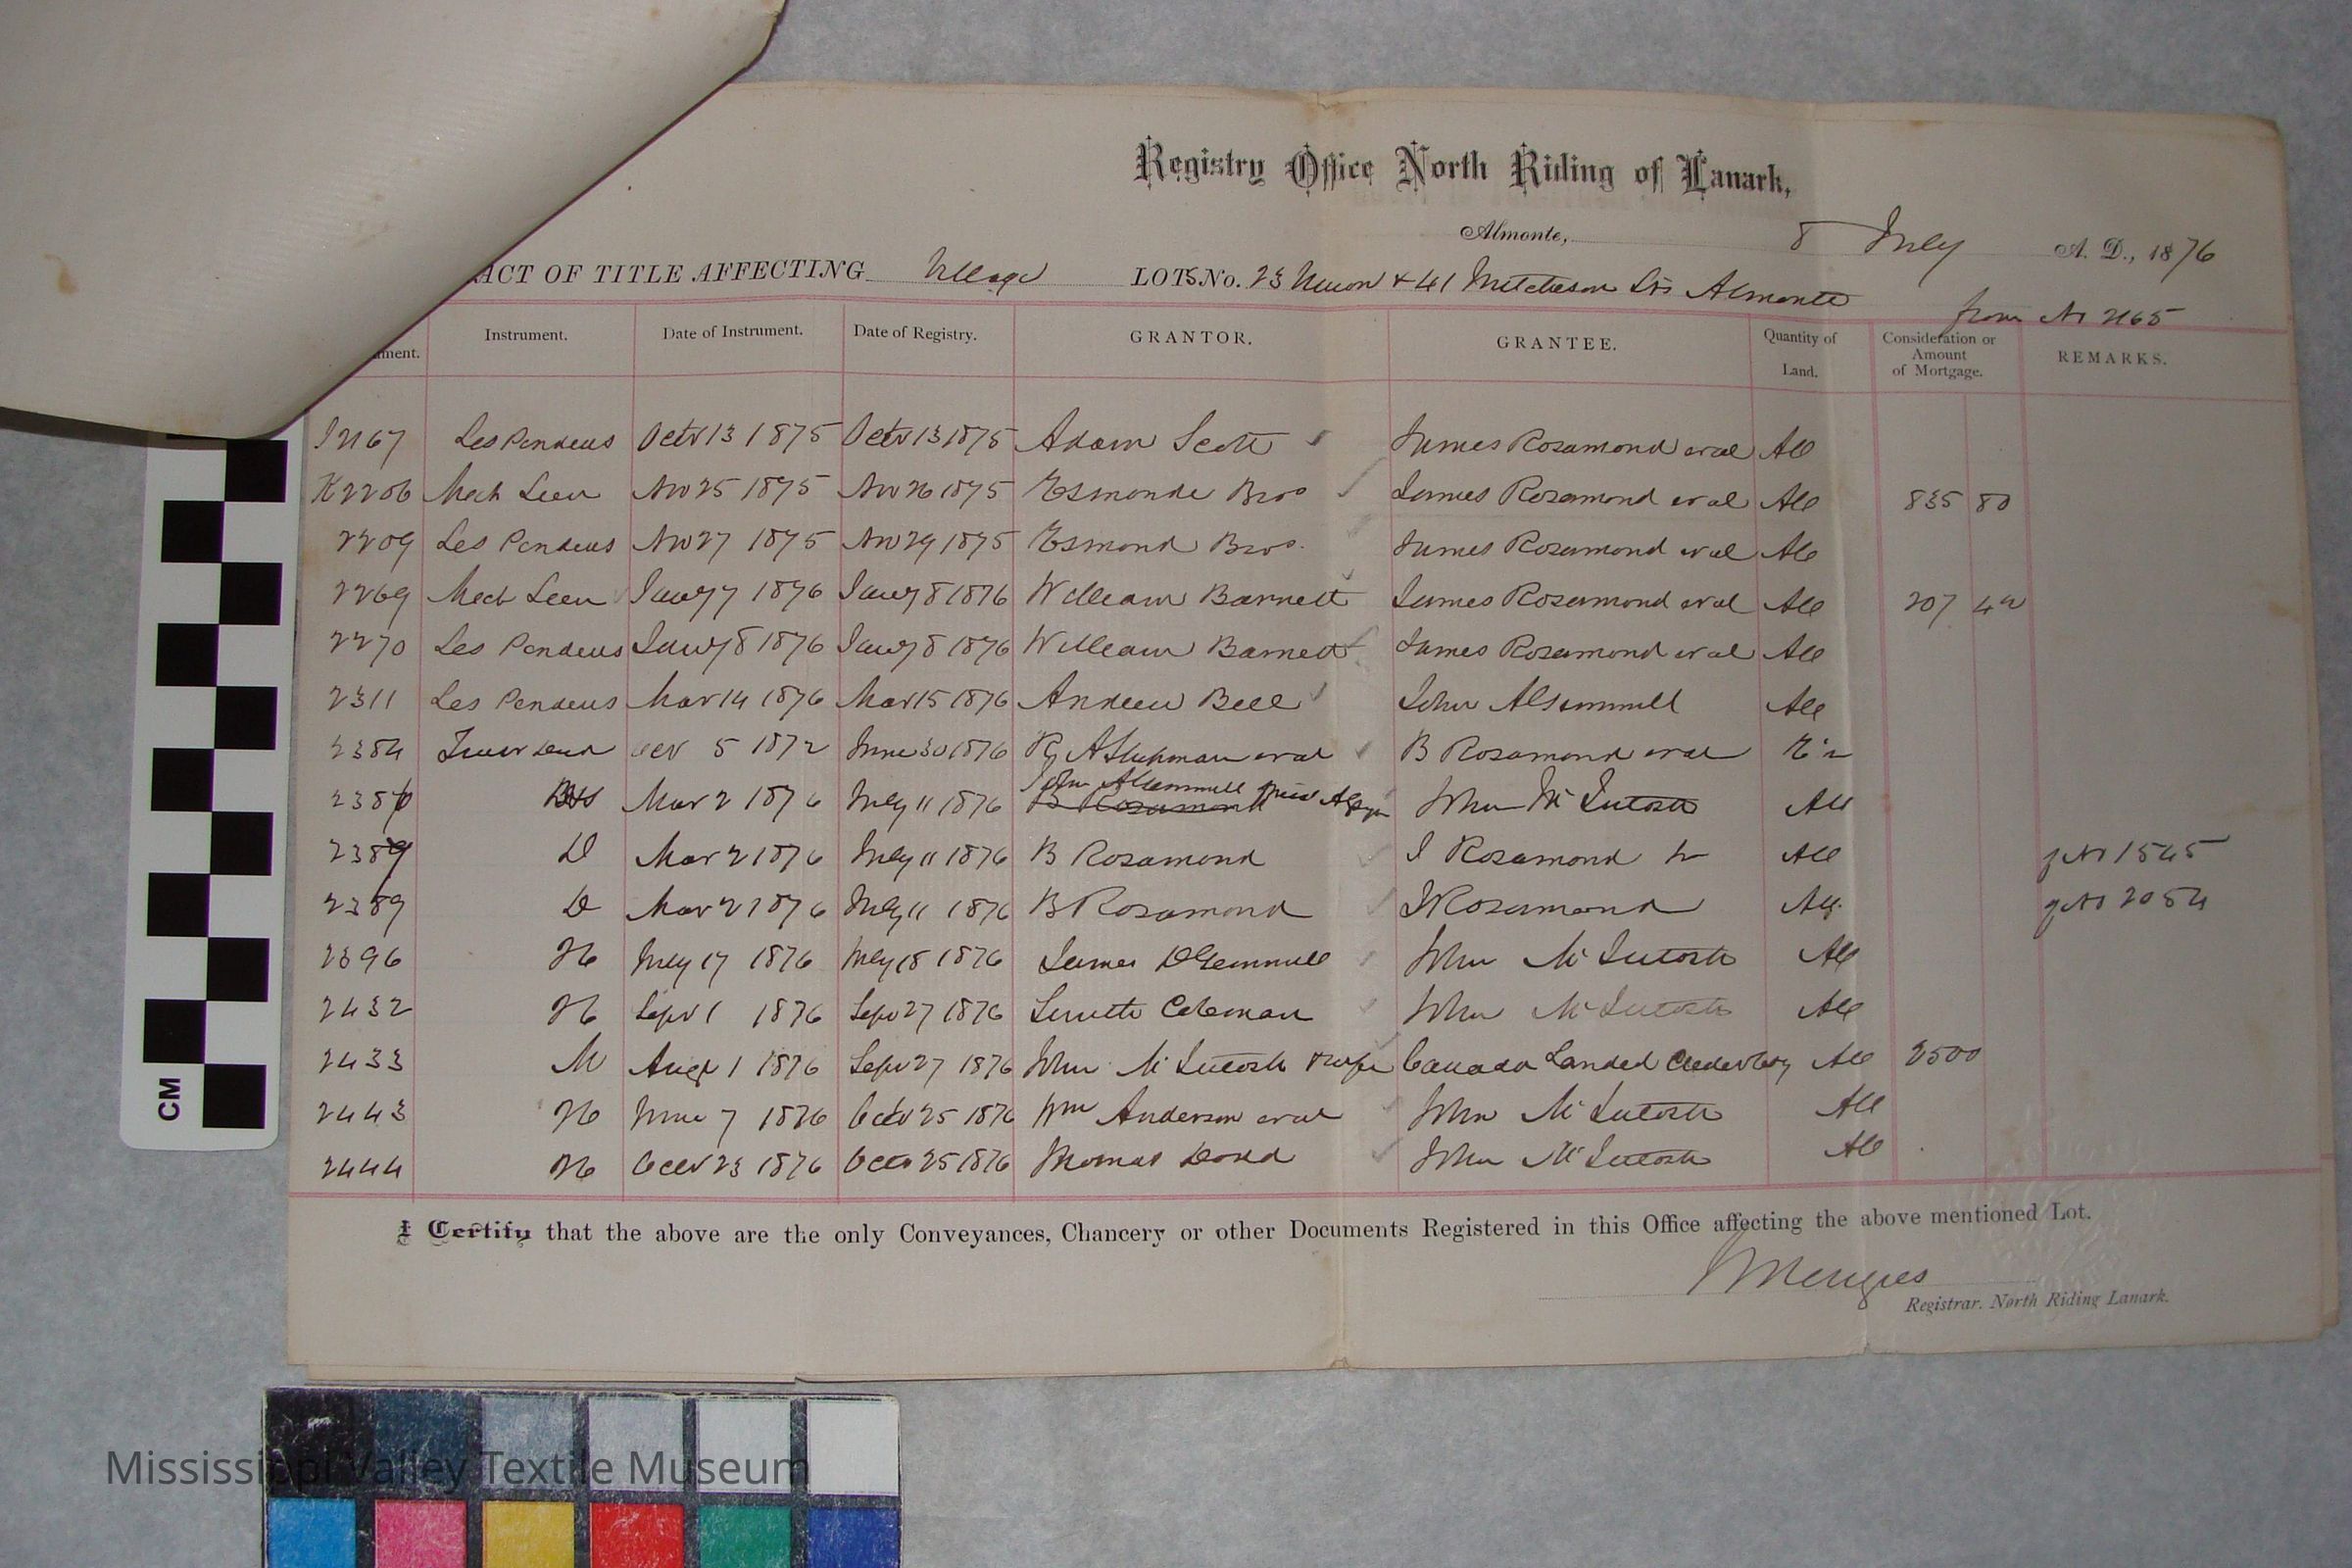 Registry Office North Riding of Lanark,
Almonte, 8 July A. D., 1876
ACT OF TITLE AFFECTING Village LOTS No. 23 Union & 41 Mitcheson Sts Almonte
from No 2165
ment. Instrument. Date of Instrument. Date of Registry. GRANTOR. GRANTEE. Quantity of Land. Consideration or Amount of Mortgage. REMARKS.
I2167 Les Pendens Octr 13 1875 Octr 13 1875 Adam Scott James Rosamond et al All
K2206 Mech Lien Nov 25 1875 Nov 26 1875 Esmonde Bros James Rosamond et al All 835 80
2209 Les Pendens Nov 27 1875 Nov 29 1875 Esmond Bros. James Rosamond et al All
2269 Mech Lien Jany 7 1876 Jany 8 1876 William Barnett James Rosamond et al All 207 42
2270 Les Pendens Jany 8 1876 Jany 8 1876 William Barnett James Rosamond et al All
2311 Les Pendens Mar 14 1876 Mar 15 1876 Andrew Bell John All
2384 5 1872 June 30 1876 et al B Rosamond et al
John
238 Mar 2 1876 July 11 1876 B Rosamond John McIntosh All
2389 D Mar 2 1876 July 11 1876 B Rosamond J Rosamond All 1545
2389 D Mar 2 1876 July 11 1876 B Rosamond J Rosamond All 2054
2396 July 17 1876 July 18 1876 James D Gemmill John McIntosh All
2432 Sept 1 1876 Sept 27 1876 Coleman John McIntosh All
2433 M Augt 1 1876 Sept 27 1876 John McIntosh & wife Canada Landed Credit Coy All 2500
2443 June 7 1876 Octr 25 1876 Wm Anderson et al John McIntosh All
2444 Octr 23 1876 Octr 25 1876 Thomas Dowd John McIntosh All
I Certify that the above are the only Conveyances, Chancery or other Documents Registered in this Office affecting the above mentioned Lot.
Menzies
Registrar. North Riding Lanark.
CM
Mississippi Valley Textile Museum